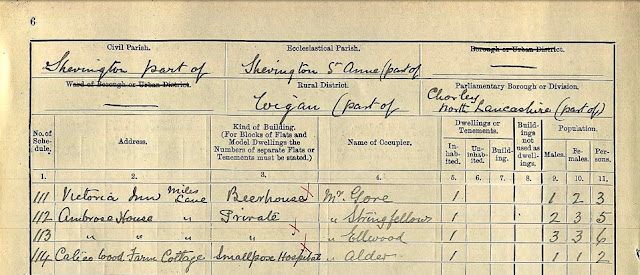 6
Civil Parish. Ecclesiastical Parish. Borough or Urban District.
Shevington part of Shevington St Anne (part of
Ward of Borough or Urban District. Rural District. Parliamentary Borough or Division.
Wigan (part of Chorley
North Lancashire (part of)
No. of Schedule. Address. Kind of Building. (For Blocks of Flats and Model Dwellings the Numbers of separate Flats or Tenements must be stated.) Name of Occupier. Dwellings or Tenements. Inhabited. Uninhabited. Building. Buildings not used as dwellings. Population. Males. Females. Persons.
1. 2. 3. 4. 5. 6. 7. 8. 9. 10. 11.
111 Victoria Inn Miles Lane Beerhouse Mr. Gore 1 1 2 3
112 Ambrose House " Private " Stringfellow 1 2 3 5
113 " " " " " Ellwood 1 3 3 6
114 Calico Wood Farm Cottage Smallpox Hospital " Alder 1 1 1 2